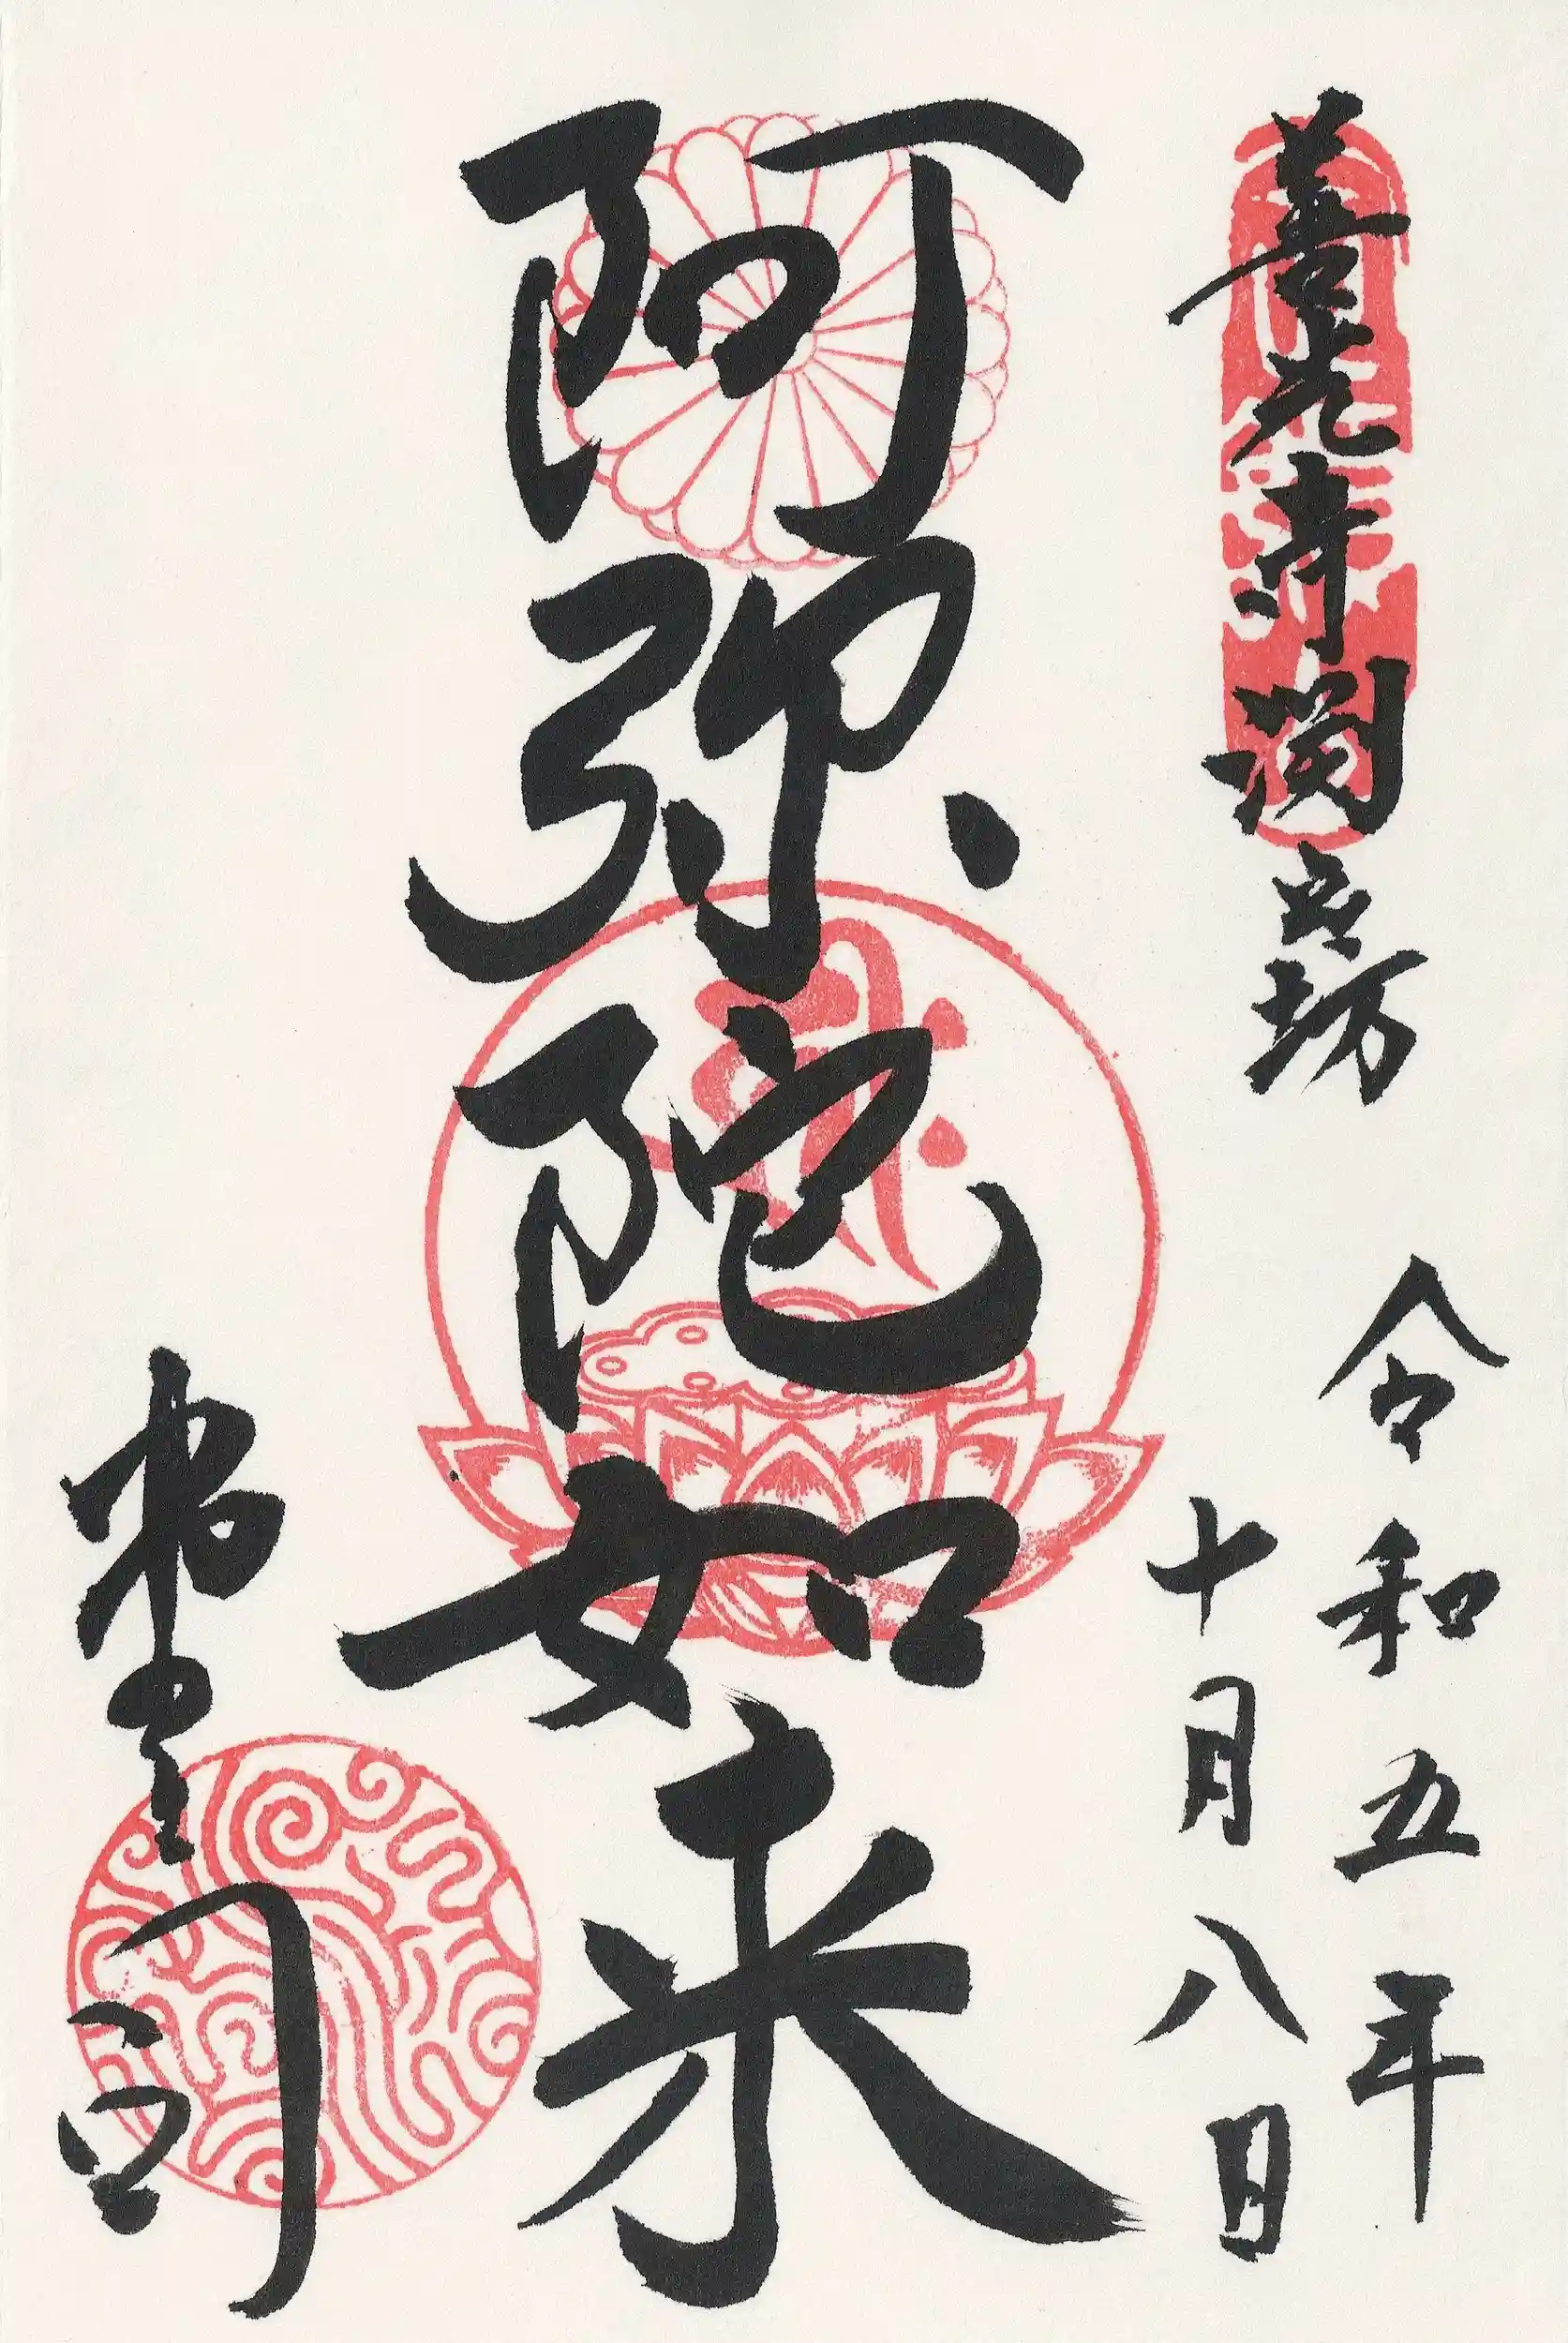 善光寺淵之坊
令和五年
十月八日
阿弥陀如来
堂司